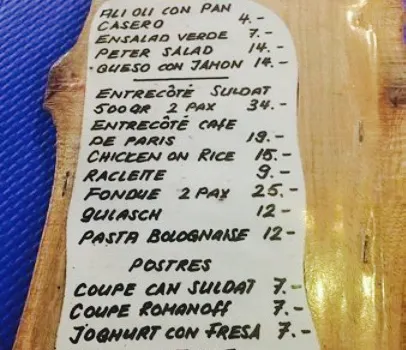 ALI OLI CON PAN
CASERO 4.-
ENSALAD VERDE 7.-
PETER SALAD 14.-
QUESO CON JAMON 14.-
ENTRECÔTÉ SULDAT
500GR 2 PAX 34.-
ENTRECÔTÉ CAFE
DE PARIS 19.-
CHICKEN ON RICE 15.-
RACLETTE 9.-
FONDUE 2 PAX 25.-
GULASCH 12-
PASTA BOLOGNAISE 12-
POSTRES
COUPE CAN SULDAT 7.-
COUPE ROMANOFF 7.-
JOGHURT CON FRESA 7.-